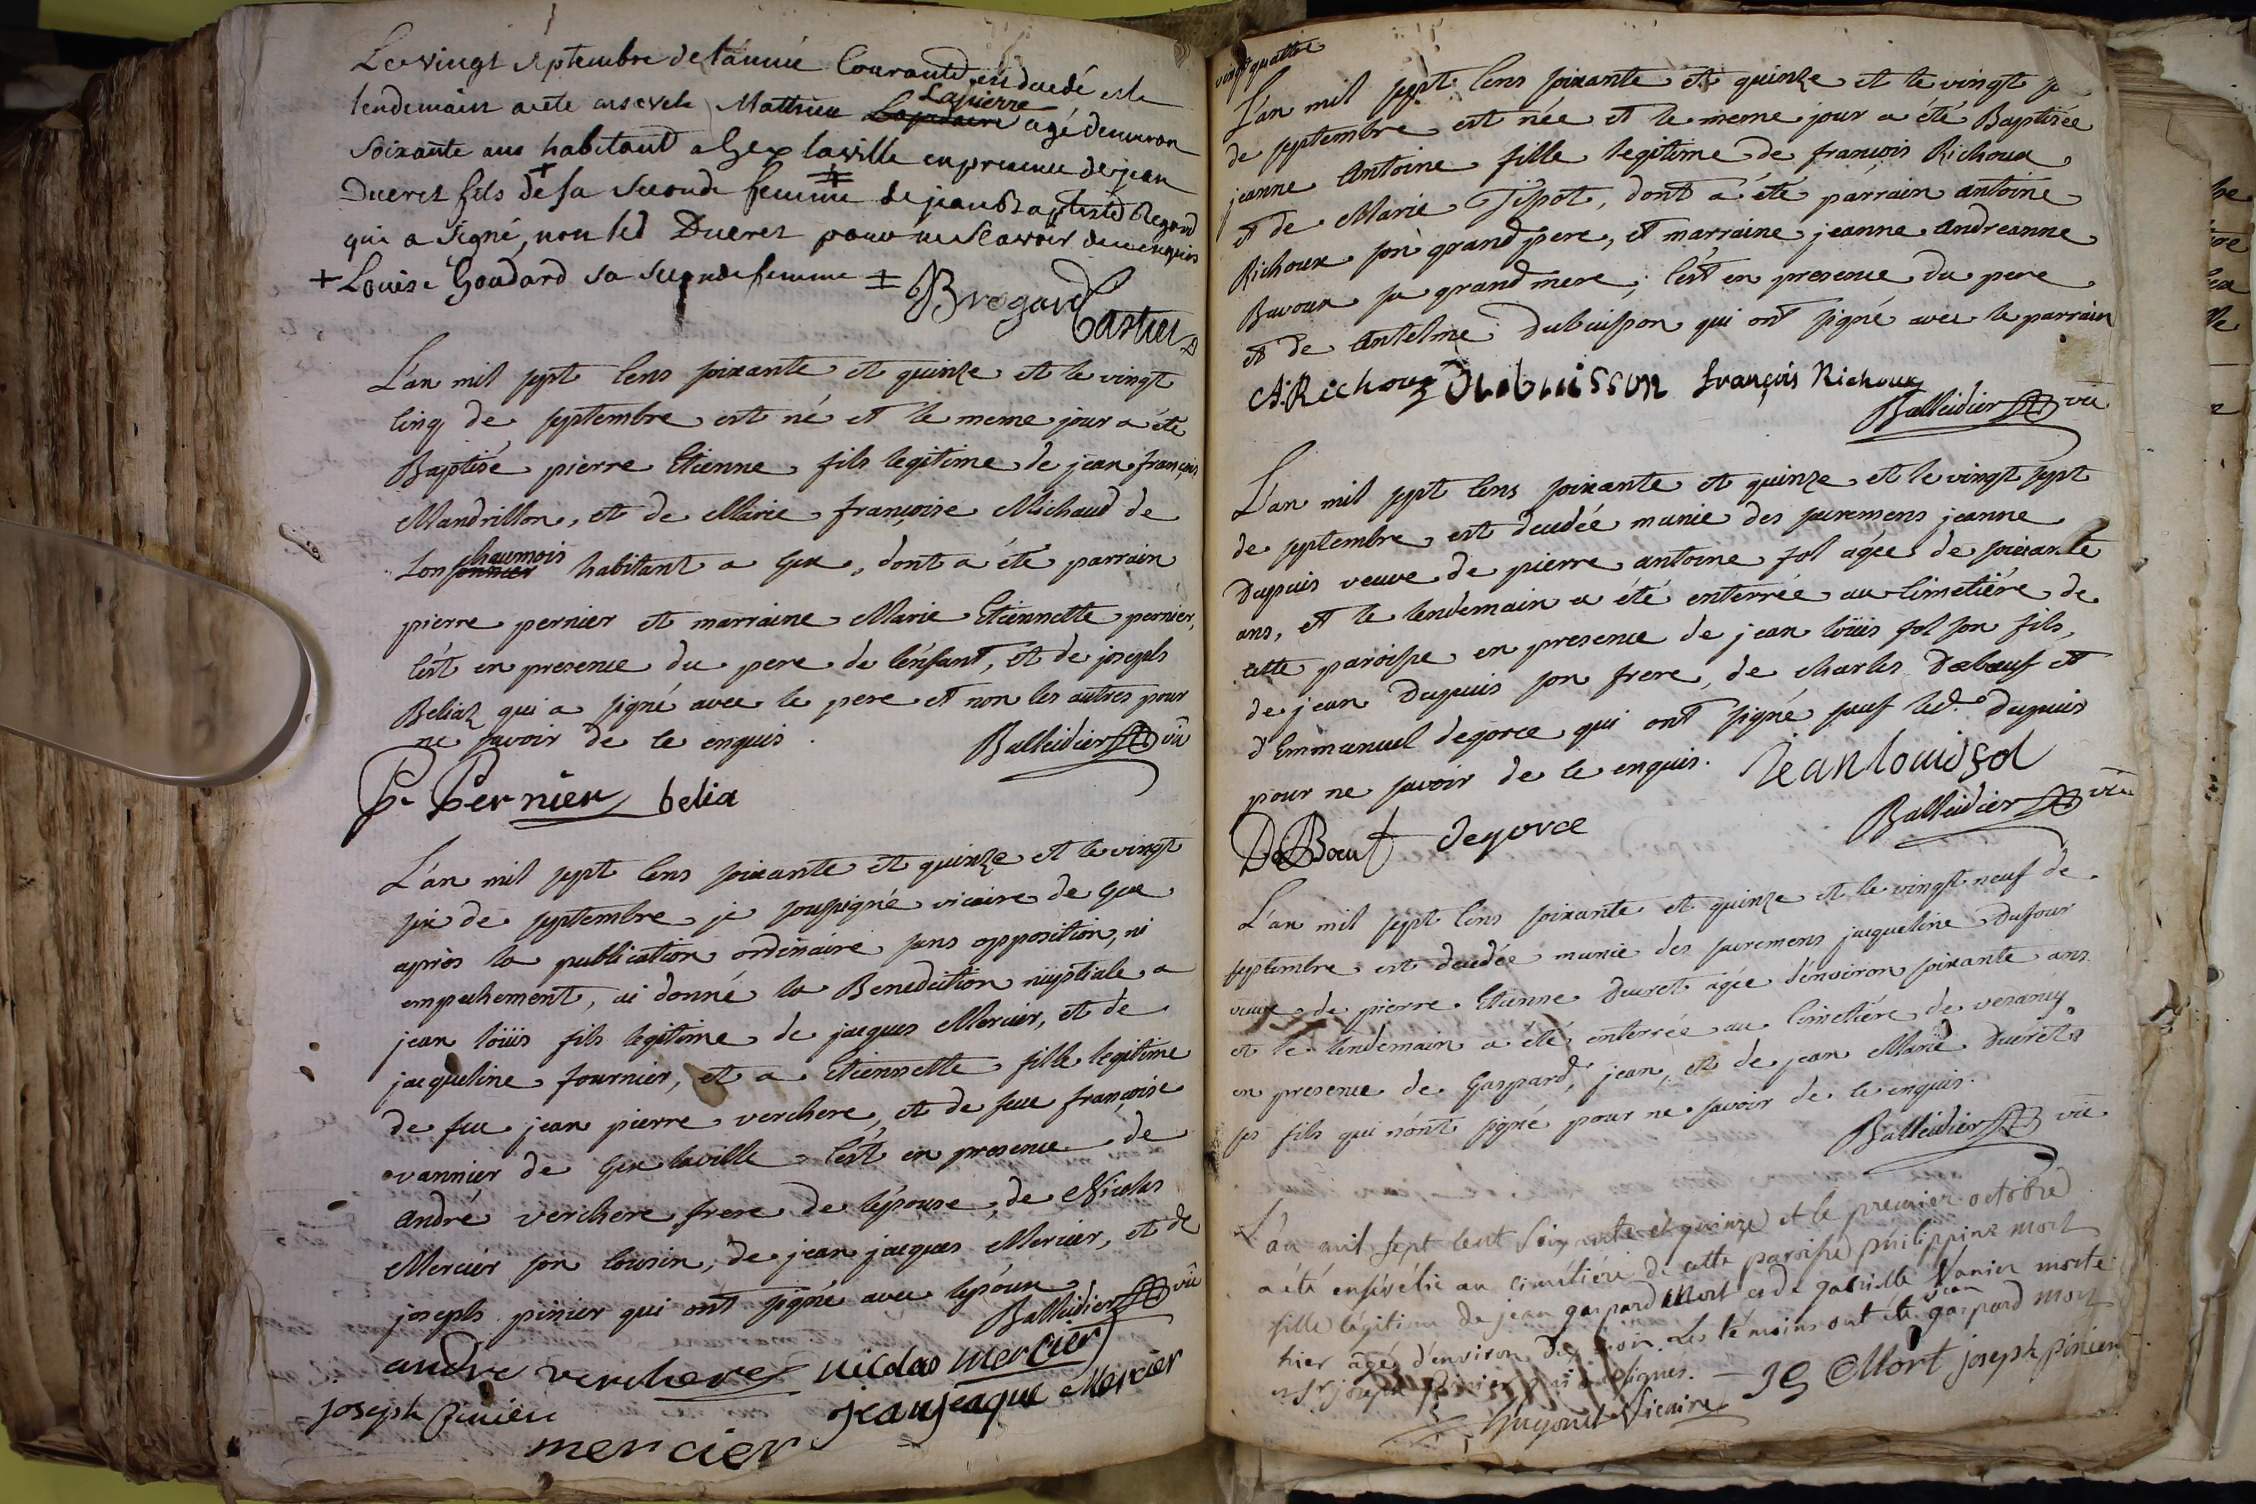 Le vingt septembre de l'année Courante est decedé et le
lendemain a eté enseveli Mathieu Lapierre agé d'environ
soixante ans habitant a Gex laville en presence de jean
Ducret fils de + sa seconde femme ± de jean Baptiste Regard
qui a signé, non led Ducret pour ne sçavoir de ce enquis
+ Louise Goudard sa seconde femme ± JB regard
Castier
L'an mil sept cens soixante et quinze et le vingt
cinq de septembre est né et le meme jour a été
Baptisé pierre Etienne fils legitime de jean françois
Mandrillon, et de Marie françoise Michaud de
Lonchaumois habitant a Gex, dont a été parrain
pierre pernier et marraine Marie Etiennette pernier,
c'ést en presence du pere de l'énfant, et de joseph
Beliaz qui a signé avec le pere et non les autres pour
ne savoir de ce enquis. Balleidier vic
P. Pernier belia
L'an mil sept cens soixante et quinze et le vingt
six de septembre je soussigné vicaire de Gex
après la publication ordinaire sans opposition, ni
empechement, ai donné la Benediction nuptiale a
jean loüis fils legitime de jacques Mercier, et de
jacqueline fournier, et a Etiennette fille legitime
de feu jean pierre verchere, et de feue françoise
vannier de Gex laville c'ést en presence de
andré verchere frere de l'épouse, de Nicolas
Mercier son cousin, de jean jacques Mercier, et de
joseph pinier qui ont signé avec l'époux
Balleidier vic
andré verchere nicolas mercier
joseph pinier jean jeaque Mercier
mercier
vingt quattre
L'an mil sept cens soixante et quinze et le vingt
de septembre est née et le meme jour a été Baptisée
jeanne Antoine fille legitime de françois Richoux
et de Marie Tissot, dont a été parrain antoine
Richoux son grand pere, et marraine jeanne Andreanne
Bavoux sa grand mere, c'ést en presence du pere
et de Antelme Dubuisson qui ont signé avec le parrain
A. Richoux Dubuisson françois Richoux
Balleidier vic
L'an mil sept cens soixante et quinze et le vingt sept
de septembre est decedée munie des sacremens jeanne
Dupuis veuve de pierre antoine fol agée de soixante
ans, et le lendemain a été enterrée au cimetiére de
cette paroisse en presence de jean loüis fol son fils,
de jean Dupuis son frere, de charles Debœuf et
d'Emmanuel degorce qui ont signé sauf led. Dupuis
pour ne savoir de ce enquis. jean louis fol
Balleidier vic
DeBœuf degorce
L'an mil sept cens soixante et quinze et le vingt neuf de
septembre est decedée munie des sacremens jacqueline Dufour
veuve de pierre Etienne Ducret agée d'énviron soixante ans
et le lendemain a été enterrée au cimetiére de vesancy
en presence de Gaspard, jean, et de jean Marie Ducret
ses fils qui n'ont signé pour ne savoir de ce enquis.
Balleidier vic
L'an mil sept cent soixante et quinze et le premier octobre
a été ensévélie au cimétiére de cette paroisse philippine Mort
fille légitime de jean gaspard Mort et de gabrielle Vanier morte
hier agée d'environ dix mois. Les témoins ont été jean gaspard Mort
et Sr joseph pinier qui ont signés. JG Mort joseph pinier
Hugonet Vicaire